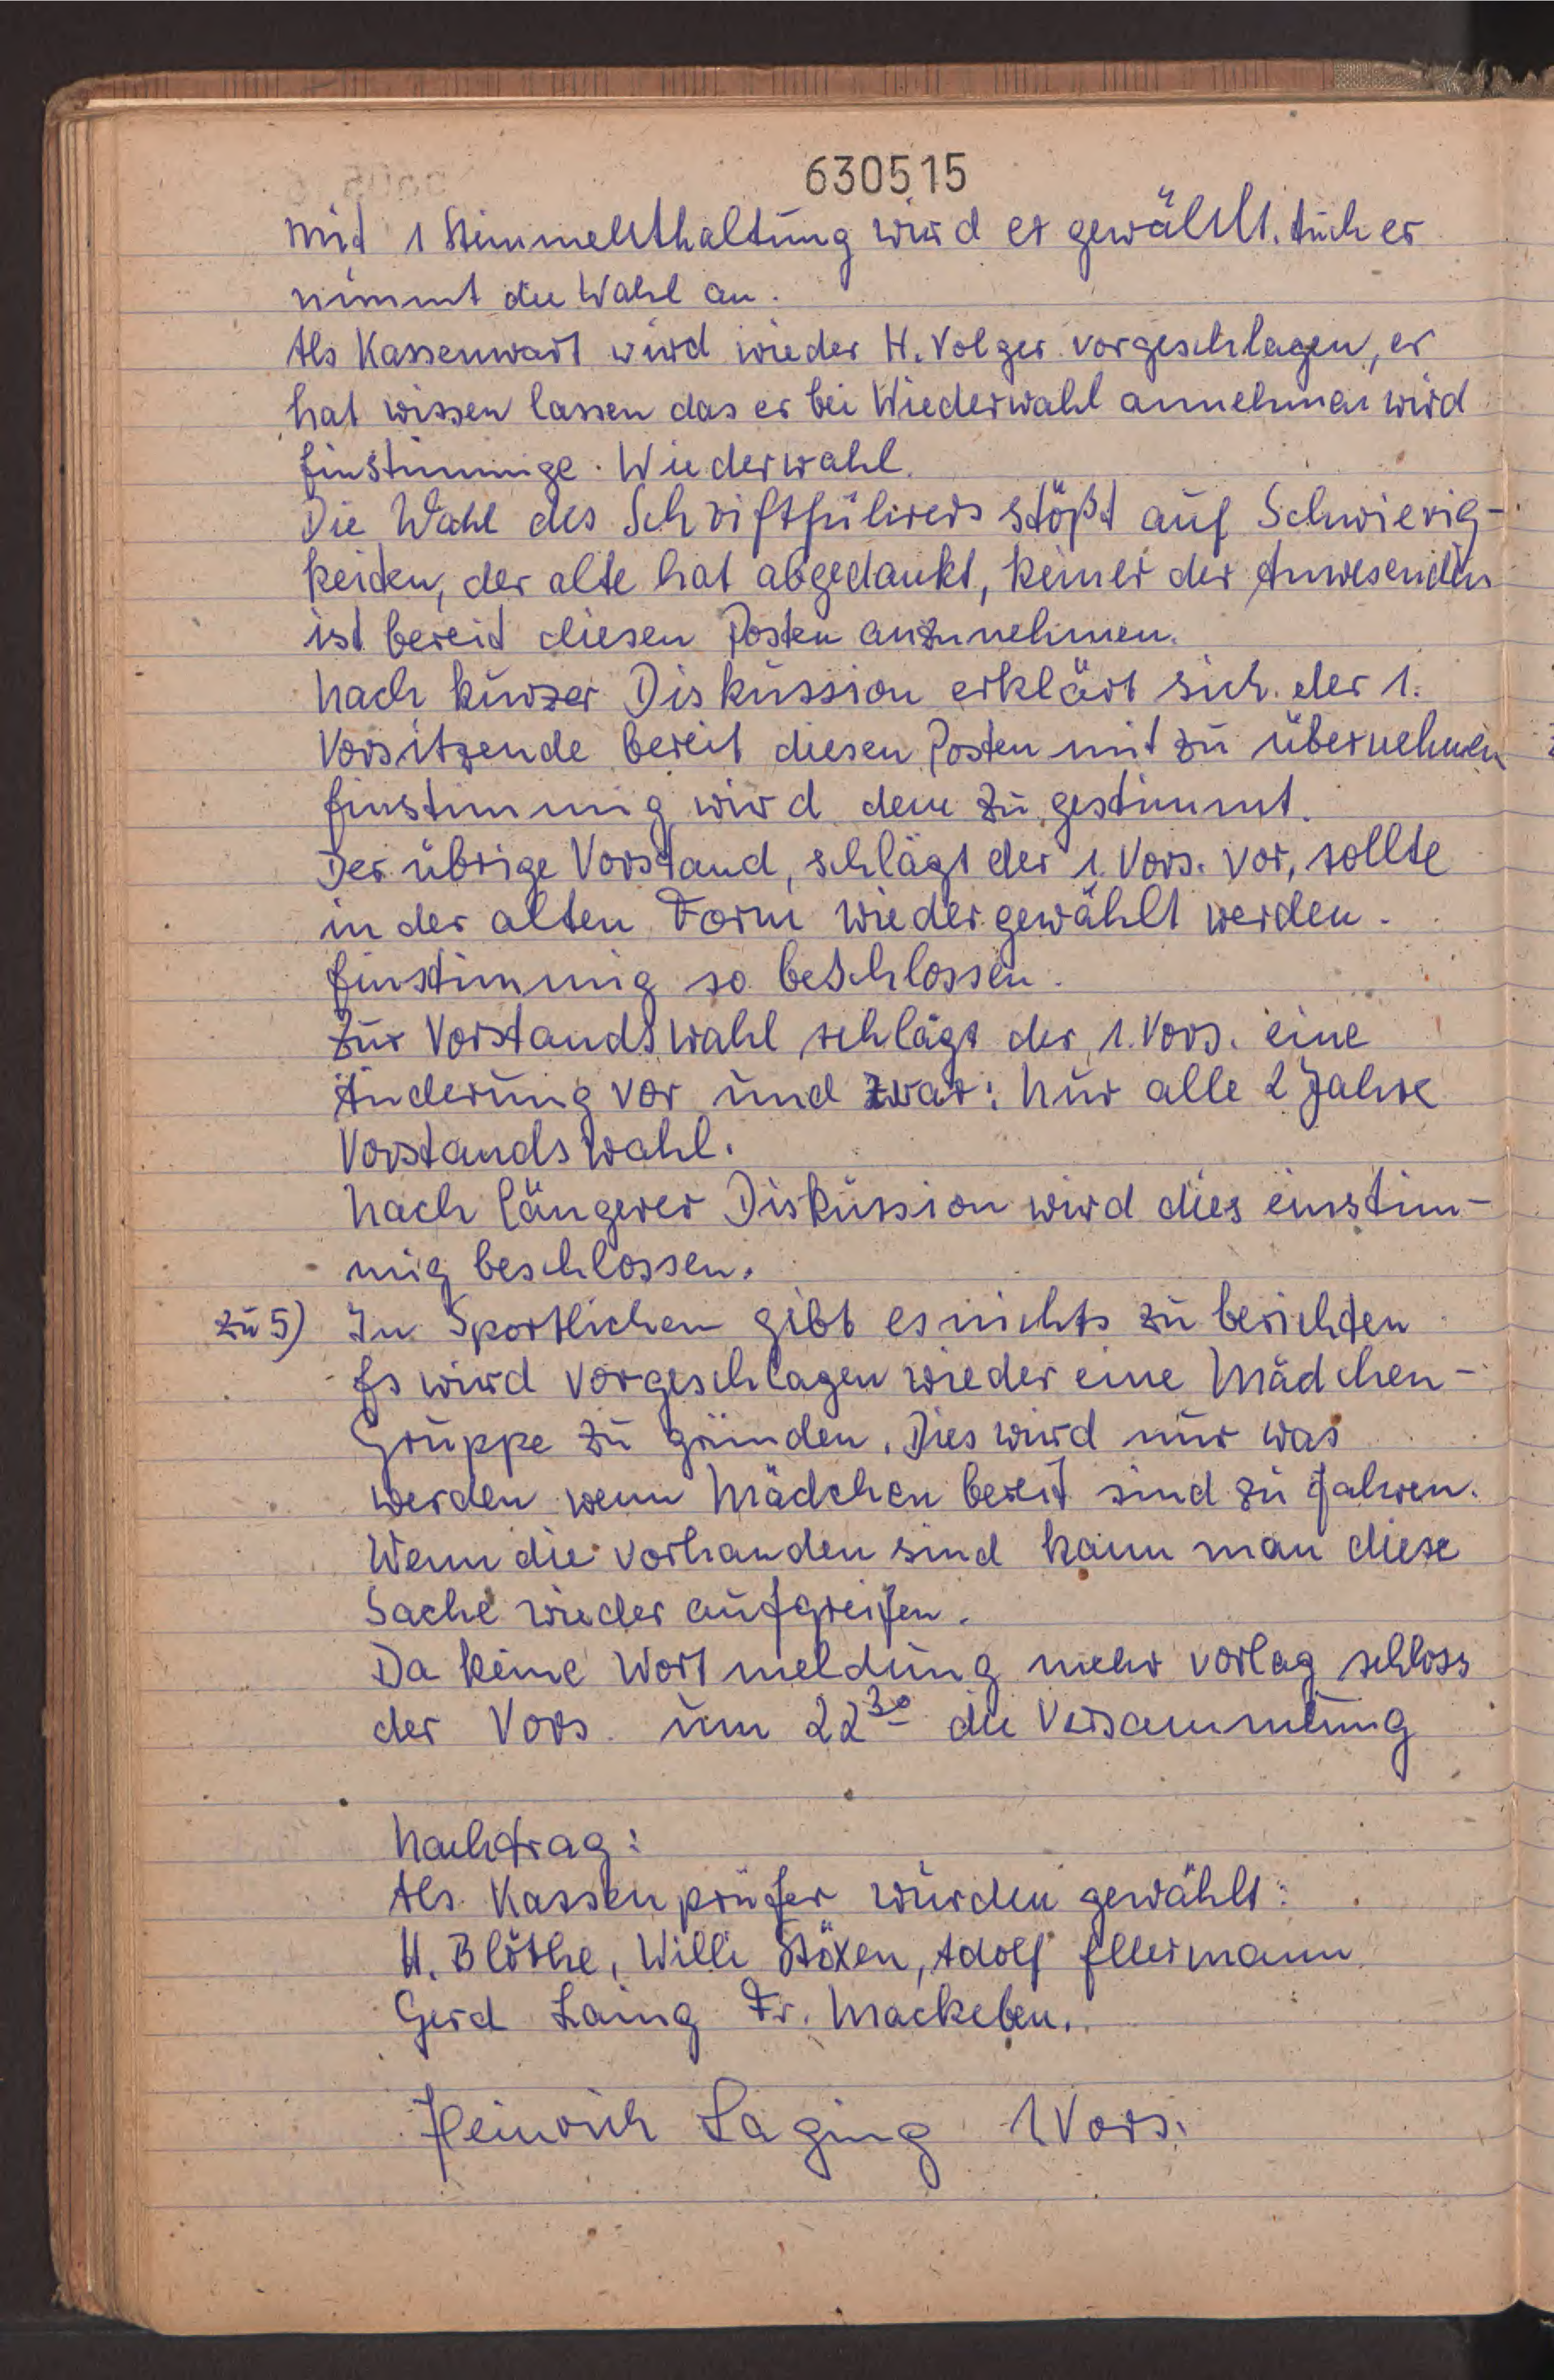 630515
mit 1 Stimmenthaltung wird er gewählt. Auch er
nimmt die Wahl an.
Als Kassenwart wird wieder H. Volger vorgeschlagen, er
hat wissen lassen das er bei Wiederwahl annehmen wird
Einstimmige Wiederwahl.
Die Wahl des Schriftführers stößt auf Schwierig-
keiten, der alte hat abgedankt, keiner der Anwesenden
ist bereit diesen Posten anzunehmen.
Nach kurzer Diskussion erklärt sich der 1.
Vorsitzende bereit diesen Posten mit zu übernehmen
Einstimmig wird dem zugestimmt.
Der übrige Vorstand, schlägt der 1. Vors. vor, sollte
in der alten Form wiedergewählt werden.
Einstimmig so beschlossen.
Zur Vorstandswahl schlägt der 1. Vors. eine
Änderung vor und zwar: Nur alle 2 Jahre
Vorstandswahl.
Nach längerer Diskussion wird dies einstim-
mig beschlossen.
zu 5) Im Sportlichen gibt es nichts zu berichten
Es wird vorgeschlagen wieder eine Mädchen-
Gruppe zu gründen. Dies wird nur was
werden wenn Mädchen bereit sind zu fahren.
Wenn die vorhanden sind kann man diese
Sache wieder aufgreifen.
Da keine Wortmeldung mehr vorlag schloss
der Vors. um 22³⁰ die Versammlung
Nachtrag:
Als Kassenprüfer wurden gewählt:
H. Blöthe, Willi Stöxen, Adolf Ellermann
Gerd Fr. Mackeben.
Heinrich Laging 1 Vors.